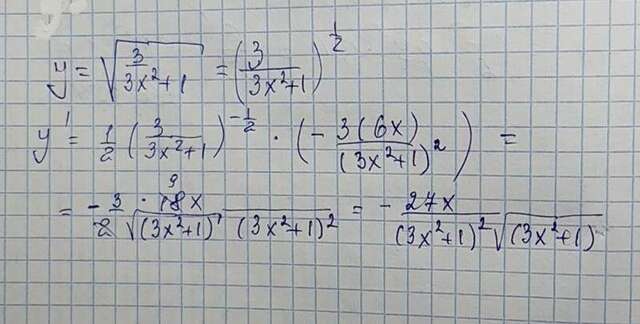 y = √(3/(3x²+1)) = (3/(3x²+1))^(1/2)
y' = 1/2 (3/(3x²+1))^(-1/2) · (- 3(6x)/(3x²+1)²) =
= - 3 · 18x 9 / 2√(3x²+1) (3x²+1)² = - 27x/((3x²+1)²√(3x²+1))